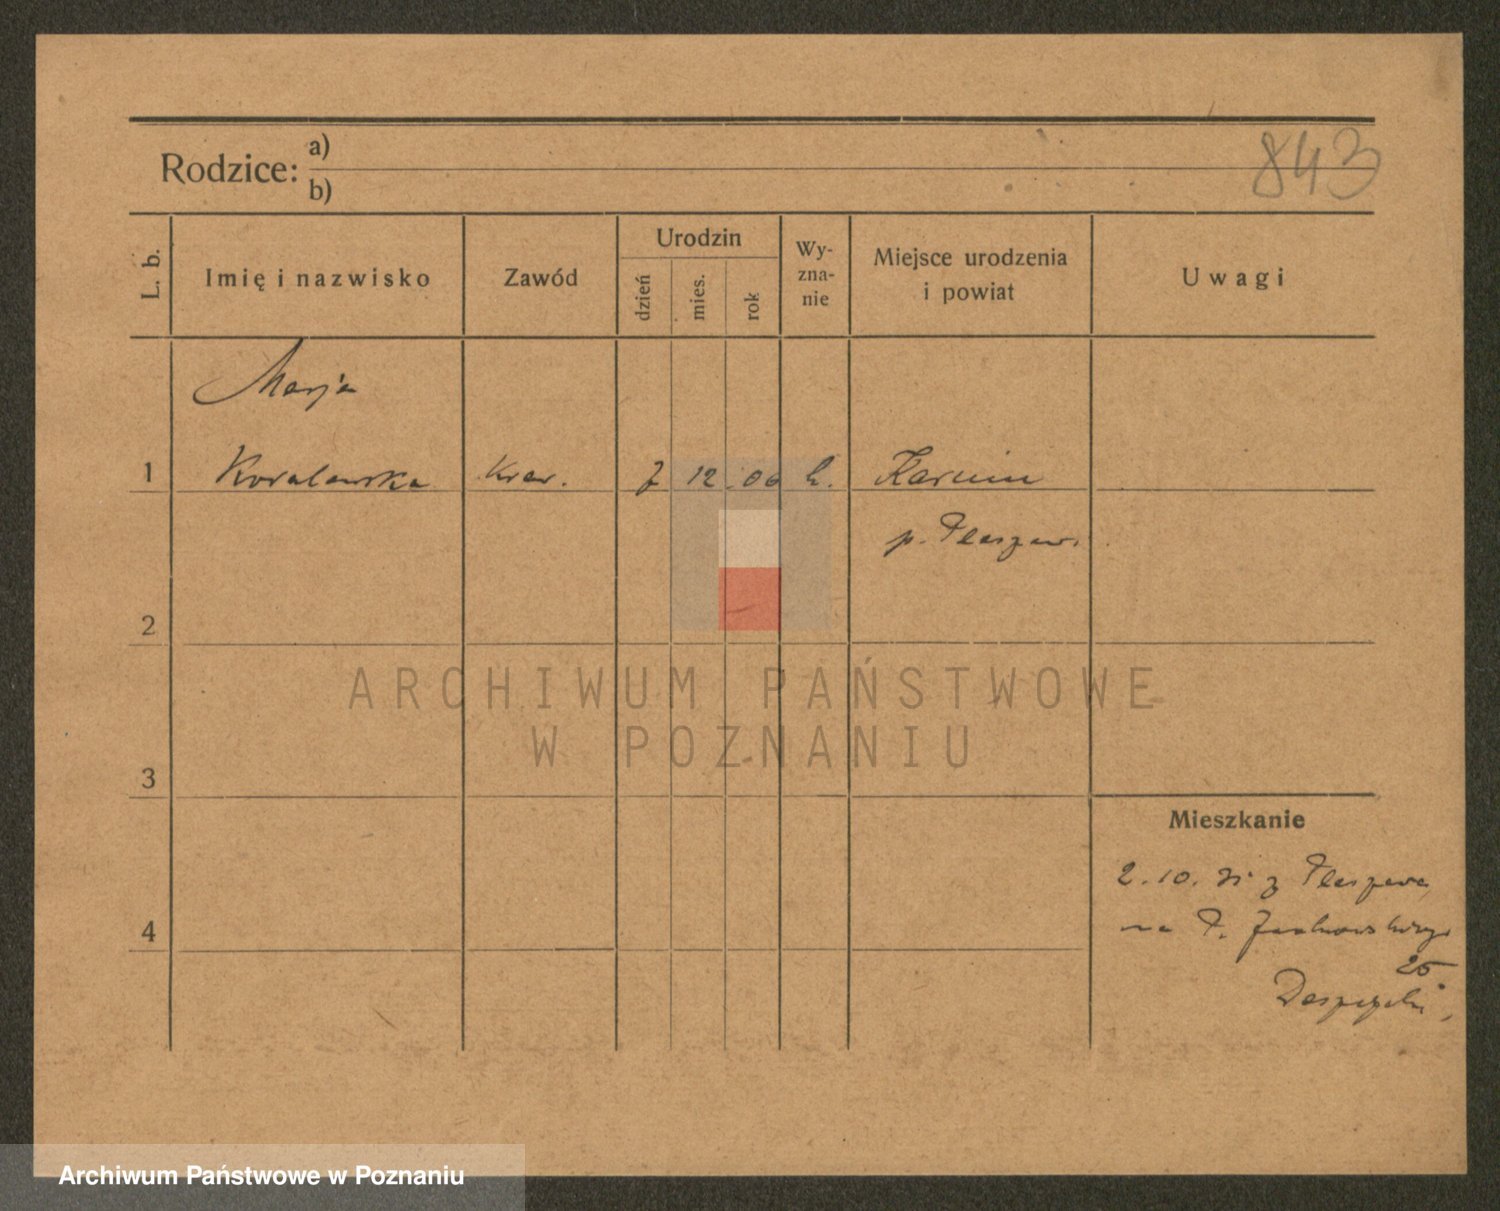 843
Rodzice: a)
b)
L. b.
Imię i nazwisko
Zawód
Urodzin
dzień
mies.
rok
Wy-
zna-
nie
Miejsce urodzenia
i powiat
Uwagi
Marja
1 Kowalewska kraw. 7 12 06 k. Karmin
p. Pleszew
2
3
4
Mieszkanie
2.10. 31 z Pleszewa
na P. Jackowskiego
25
ARCHIWUM PAŃSTWOWE
W POZNANIU
Archiwum Państwowe w Poznaniu